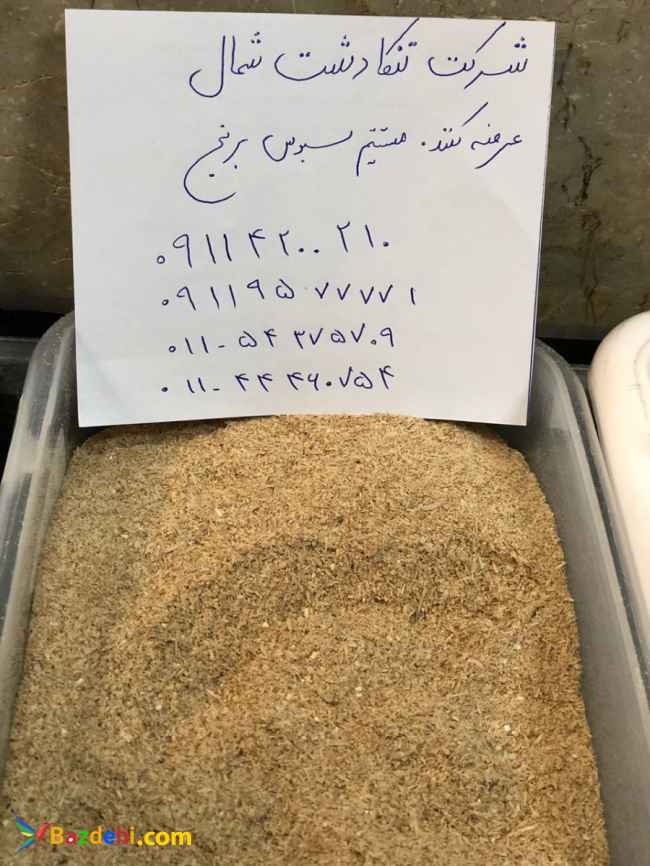 شرکت تنکادشت شمال
عرضه کننده مستقیم سبوس برنج
۰۹۱۱۴۲۰۰۲۱۰
۰۹۱۱۹۵۰۷۷۷۷۱
۰۱۱-۵۴۳۷۵۷۰۹
۰۱۱-۴۴۴۶۰۷۵۴
Bazdebi.com